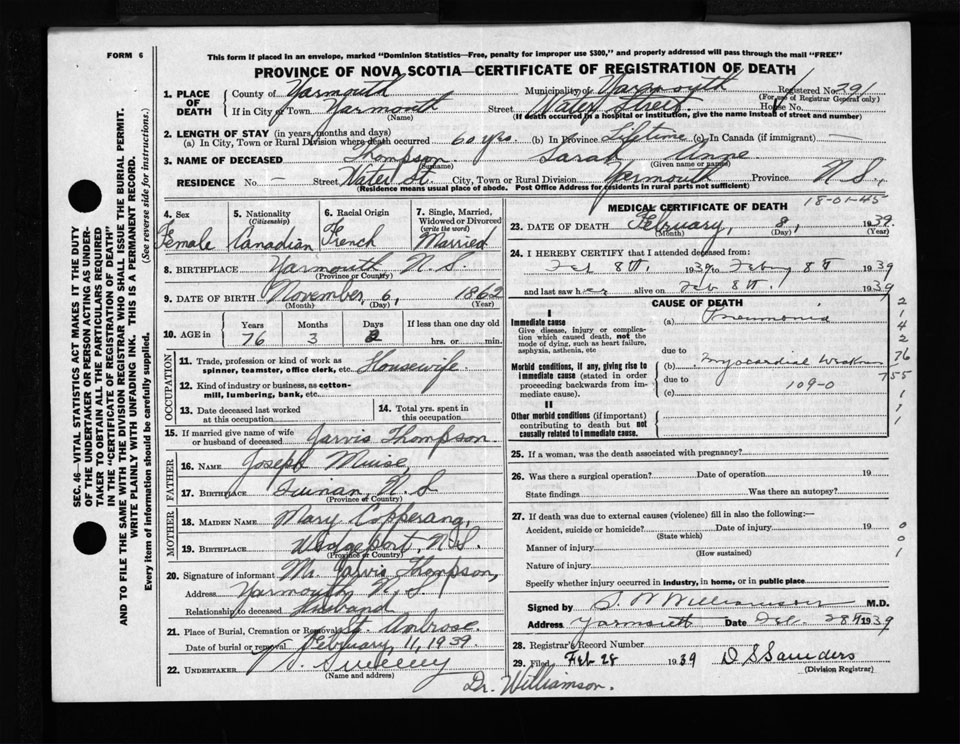 FORM 6
This form if placed in an envelope, marked "Dominion Statistics—Free, penalty for improper use $300," and properly addressed will pass through the mail "FREE"
PROVINCE OF NOVA SCOTIA—CERTIFICATE OF REGISTRATION OF DEATH
SEC. 46—VITAL STATISTICS ACT MAKES IT THE DUTY
OF THE UNDERTAKER OR PERSON ACTING AS UNDER-
TAKER TO OBTAIN ALL THE PARTICULARS REQUIRED
IN THE "CERTIFICATE OF REGISTRATION OF DEATH"
AND TO FILE THE SAME WITH THE DIVISION REGISTRAR WHO SHALL ISSUE THE BURIAL PERMIT.
WRITE PLAINLY WITH UNFADING INK. THIS IS A PERMANENT RECORD.
Every item of information should be carefully supplied. (See reverse side for instructions.)
1. PLACE OF DEATH County of Yarmouth Municipality of Yarmouth Registered No. 291
(For use of Registrar General only)
If in City or Town Yarmouth (Name) Street Water Street. House No.
(If death occurred in a hospital or institution, give the name instead of street and number)
2. LENGTH OF STAY (in years, months and days)
(a) In City, Town or Rural Division where death occurred 60 yrs. (b) In Province Lifetime (c) In Canada (if immigrant) —
3. NAME OF DECEASED Thompson (Surname) Sarah Anne (Given name or names)
RESIDENCE No. Street Water St. City, Town or Rural Division Yarmouth Province N.S.,
(Residence means usual place of abode. Post Office Address for residents in rural parts not sufficient)
18-01-45
4. Sex Female
5. Nationality (Citizenship) Canadian
6. Racial Origin French
7. Single, Married, Widowed or Divorced (write the word) Married
8. BIRTHPLACE Yarmouth N.S. (Province or Country)
9. DATE OF BIRTH November, 6, 1862 (Month) (Day) (Year)
10. AGE in Years 76 Months 3 Days 2 If less than one day old hrs. or min.
OCCUPATION
11. Trade, profession or kind of work as spinner, teamster, office clerk, etc. Housewife
12. Kind of industry or business, as cotton-mill, lumbering, bank, etc.
13. Date deceased last worked at this occupation
14. Total yrs. spent in this occupation
15. If married give name of wife or husband of deceased Jarvis Thompson
FATHER
16. NAME Joseph Muise,
17. BIRTHPLACE Quinan, N.S (Province or Country)
MOTHER
18. MAIDEN NAME Mary Copperang,
19. BIRTHPLACE Wedgeport, N.S. (Province or Country)
20. Signature of informant Mr. Jarvis Thompson,
Address Yarmouth, N.S.
Relationship to deceased Husband
21. Place of Burial, Cremation or Removal St. Ambrose.
Date of burial or removal February 11, 1939.
22. UNDERTAKER Sweeney
(Name and address)
Dr. Williamson.
MEDICAL CERTIFICATE OF DEATH
23. DATE OF DEATH February, 8, 1939. (Month) (Day) (Year)
24. I HEREBY CERTIFY that I attended deceased from
Feb 8th, 1939 to Feby 8th 1939
and last saw her alive on Feb 8th, 1939
CAUSE OF DEATH
I
Immediate cause (a) Pneumonia
Give disease, injury or complication which caused death, not the mode of dying, such as heart failure, asphyxia, asthenia, etc
due to
Morbid conditions, if any, giving rise to immediate cause (stated in order proceeding backwards from immediate) (b) myocardial
due to 109-0
(c)
II
Other morbid conditions (if important) contributing to death but not causally related to immediate cause.
2
1
4
2
76
755
1
1
1
25. If a woman, was the death associated with pregnancy?
26. Was there a surgical operation? Date of operation 19
State findings Was there an autopsy?
27. If death was due to external causes (violence) fill in also the following:—
Accident, suicide or homicide? (State which) Date of injury 19
Manner of injury (How sustained)
Nature of injury
Specify whether injury occurred in industry, in home, or in public place
0
0
1
Signed by S. W Williamson M.D.
Address Yarmouth Date Feb. 28th 1939
28. Registrar's Record Number
29. Filed Feb 28 1939 D S Saunders
(Division Registrar)